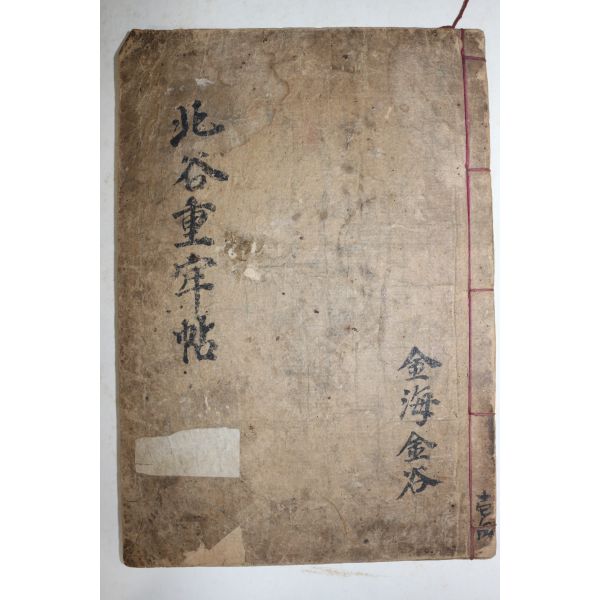 金海金谷
北谷重牢帖